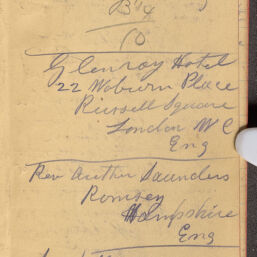 10
Glenroy Hotel
22 Woburn Place
Russell Square
London W C
Eng
Rev Arther Saunders
Romsey
Hampshire
Eng